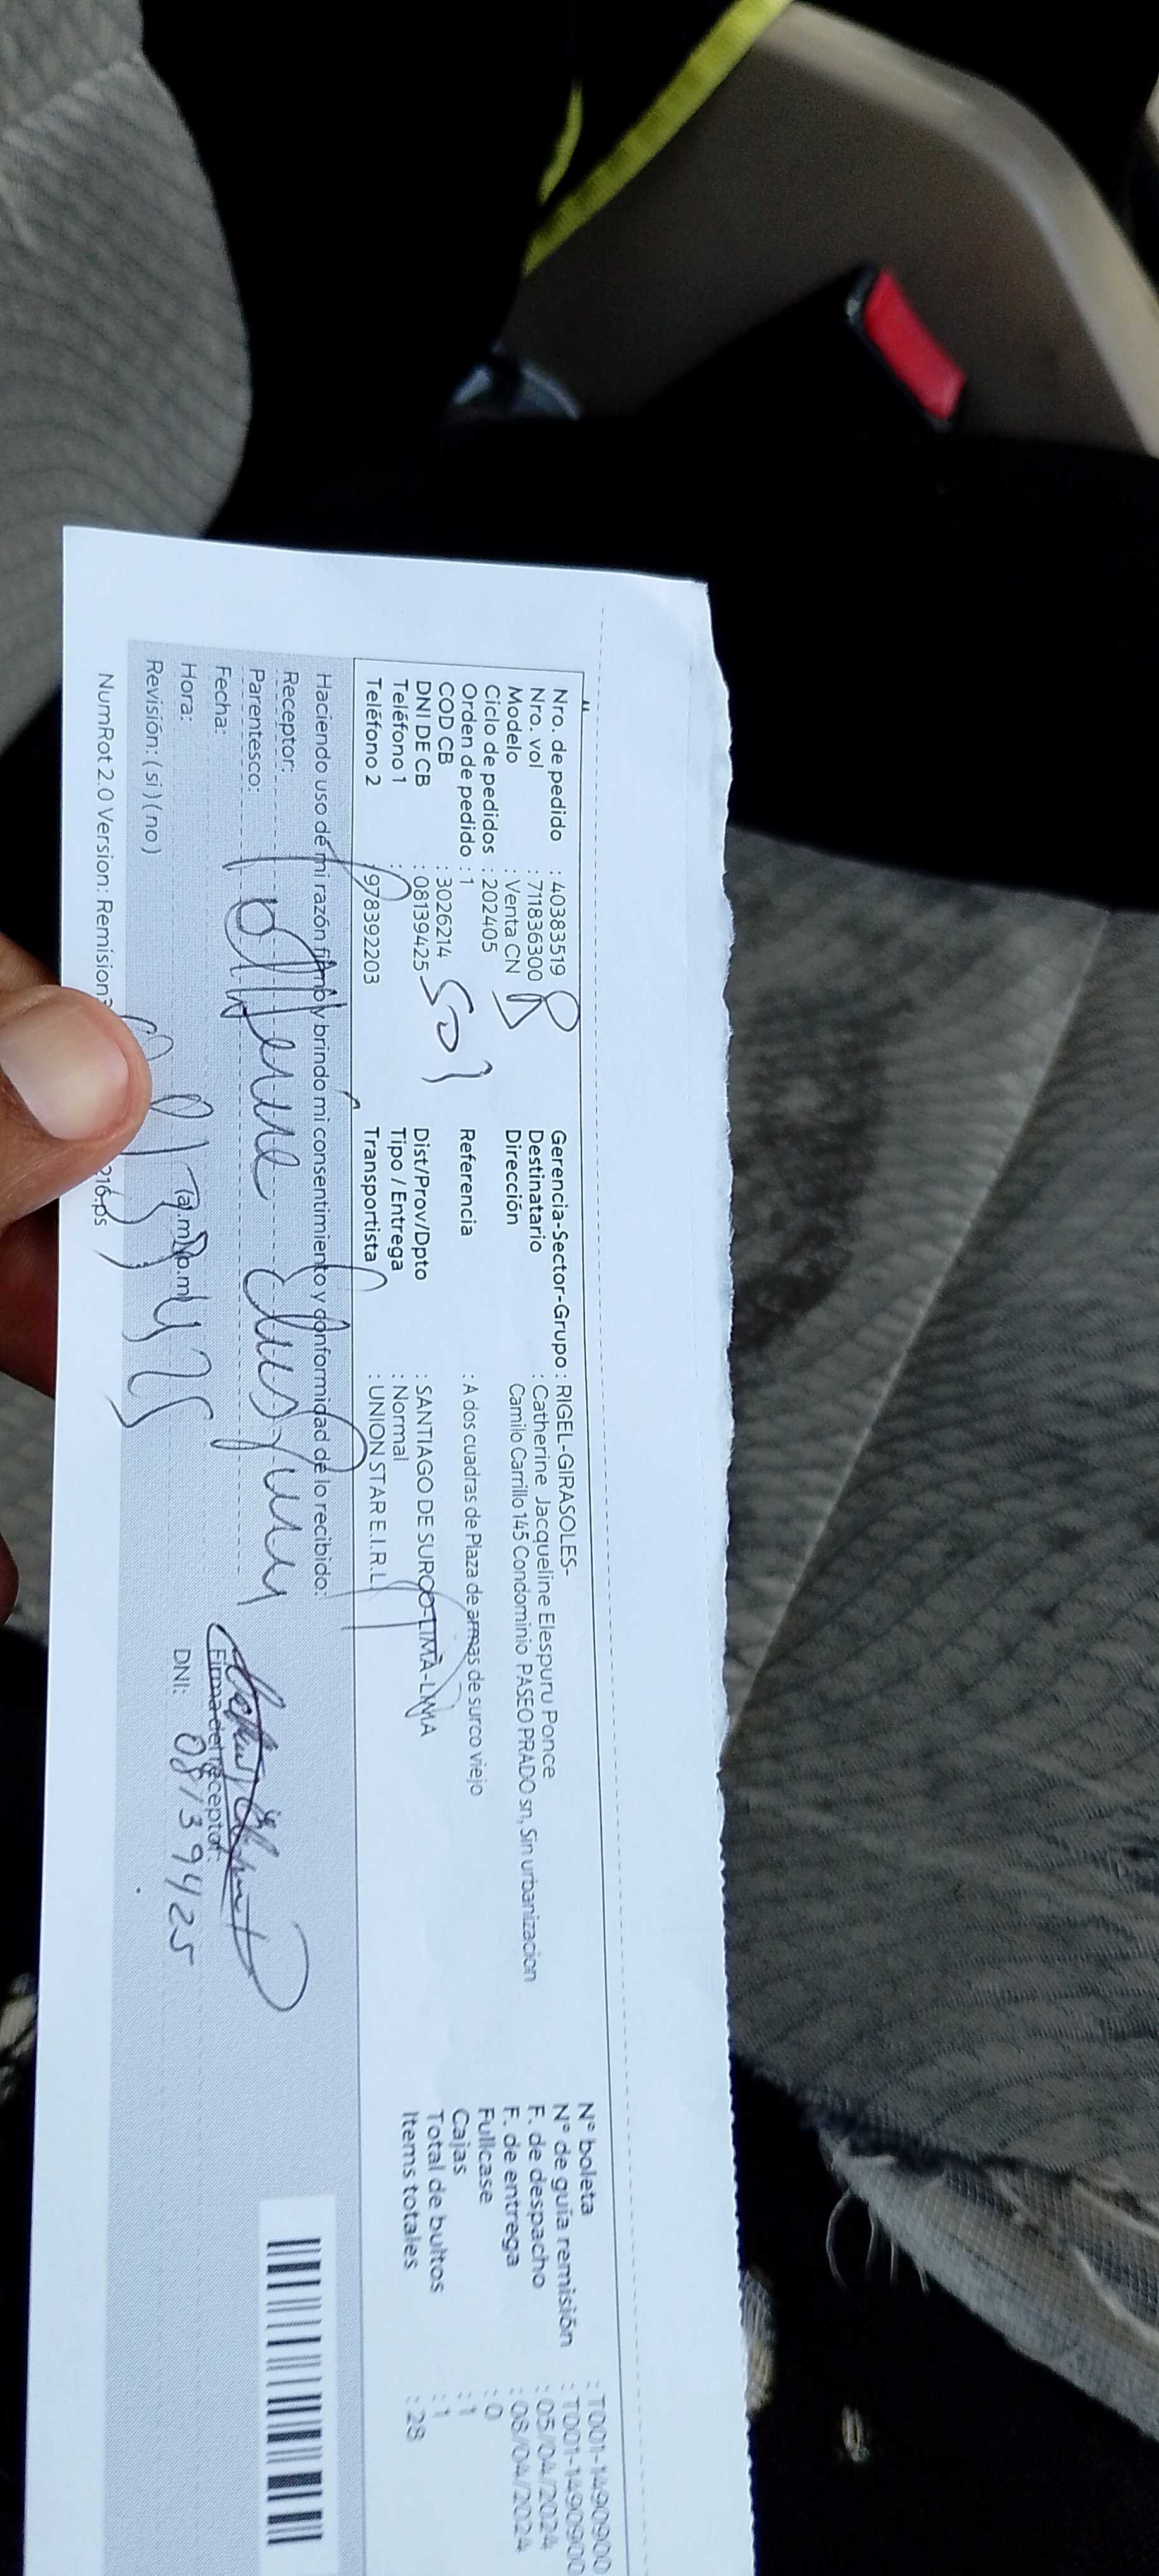 Nro. de pedido : 40383519
Nro. vol : 711836300
Modelo : Venta CN
Ciclo de pedidos : 202405
Orden de pedido : 1
COD CB : 3026214
DNI DE CB : 08139425
Teléfono 1 :
Teléfono 2 : 978392203
501
Gerencia-Sector-Grupo : RIGEL-GIRASOLES-
Destinatario : Catherine Jacqueline Elespuru Ponce
Dirección Camilo Carrillo 145 Condominio PASEO PRADO sn, Sin urbanizacion
Referencia : A dos cuadras de Plaza de armas de surco viejo
Dist/Prov/Dpto : SANTIAGO DE SURCO-LIMA-LIMA
Tipo / Entrega : Normal
Transportista : UNION STAR E.I.R.L
N° boleta : T001-1490900
N° de guía remisión : T001-1490900
F. de despacho : 05/04/2024
F. de entrega : 08/04/2024
Fullcase : 0
Cajas : 1
Total de bultos : 1
Items totales : 28
Haciendo uso de mi razón firmo y brindo mi consentimiento y conformidad de lo recibido:
Receptor:
Parentesco:
Fecha:
Hora: (a).m (p.m)
Revisión: ( si ) ( no )
Firma del receptor:
DNI: 08139425
NumRot 2.0 Version: Remision 216.ps